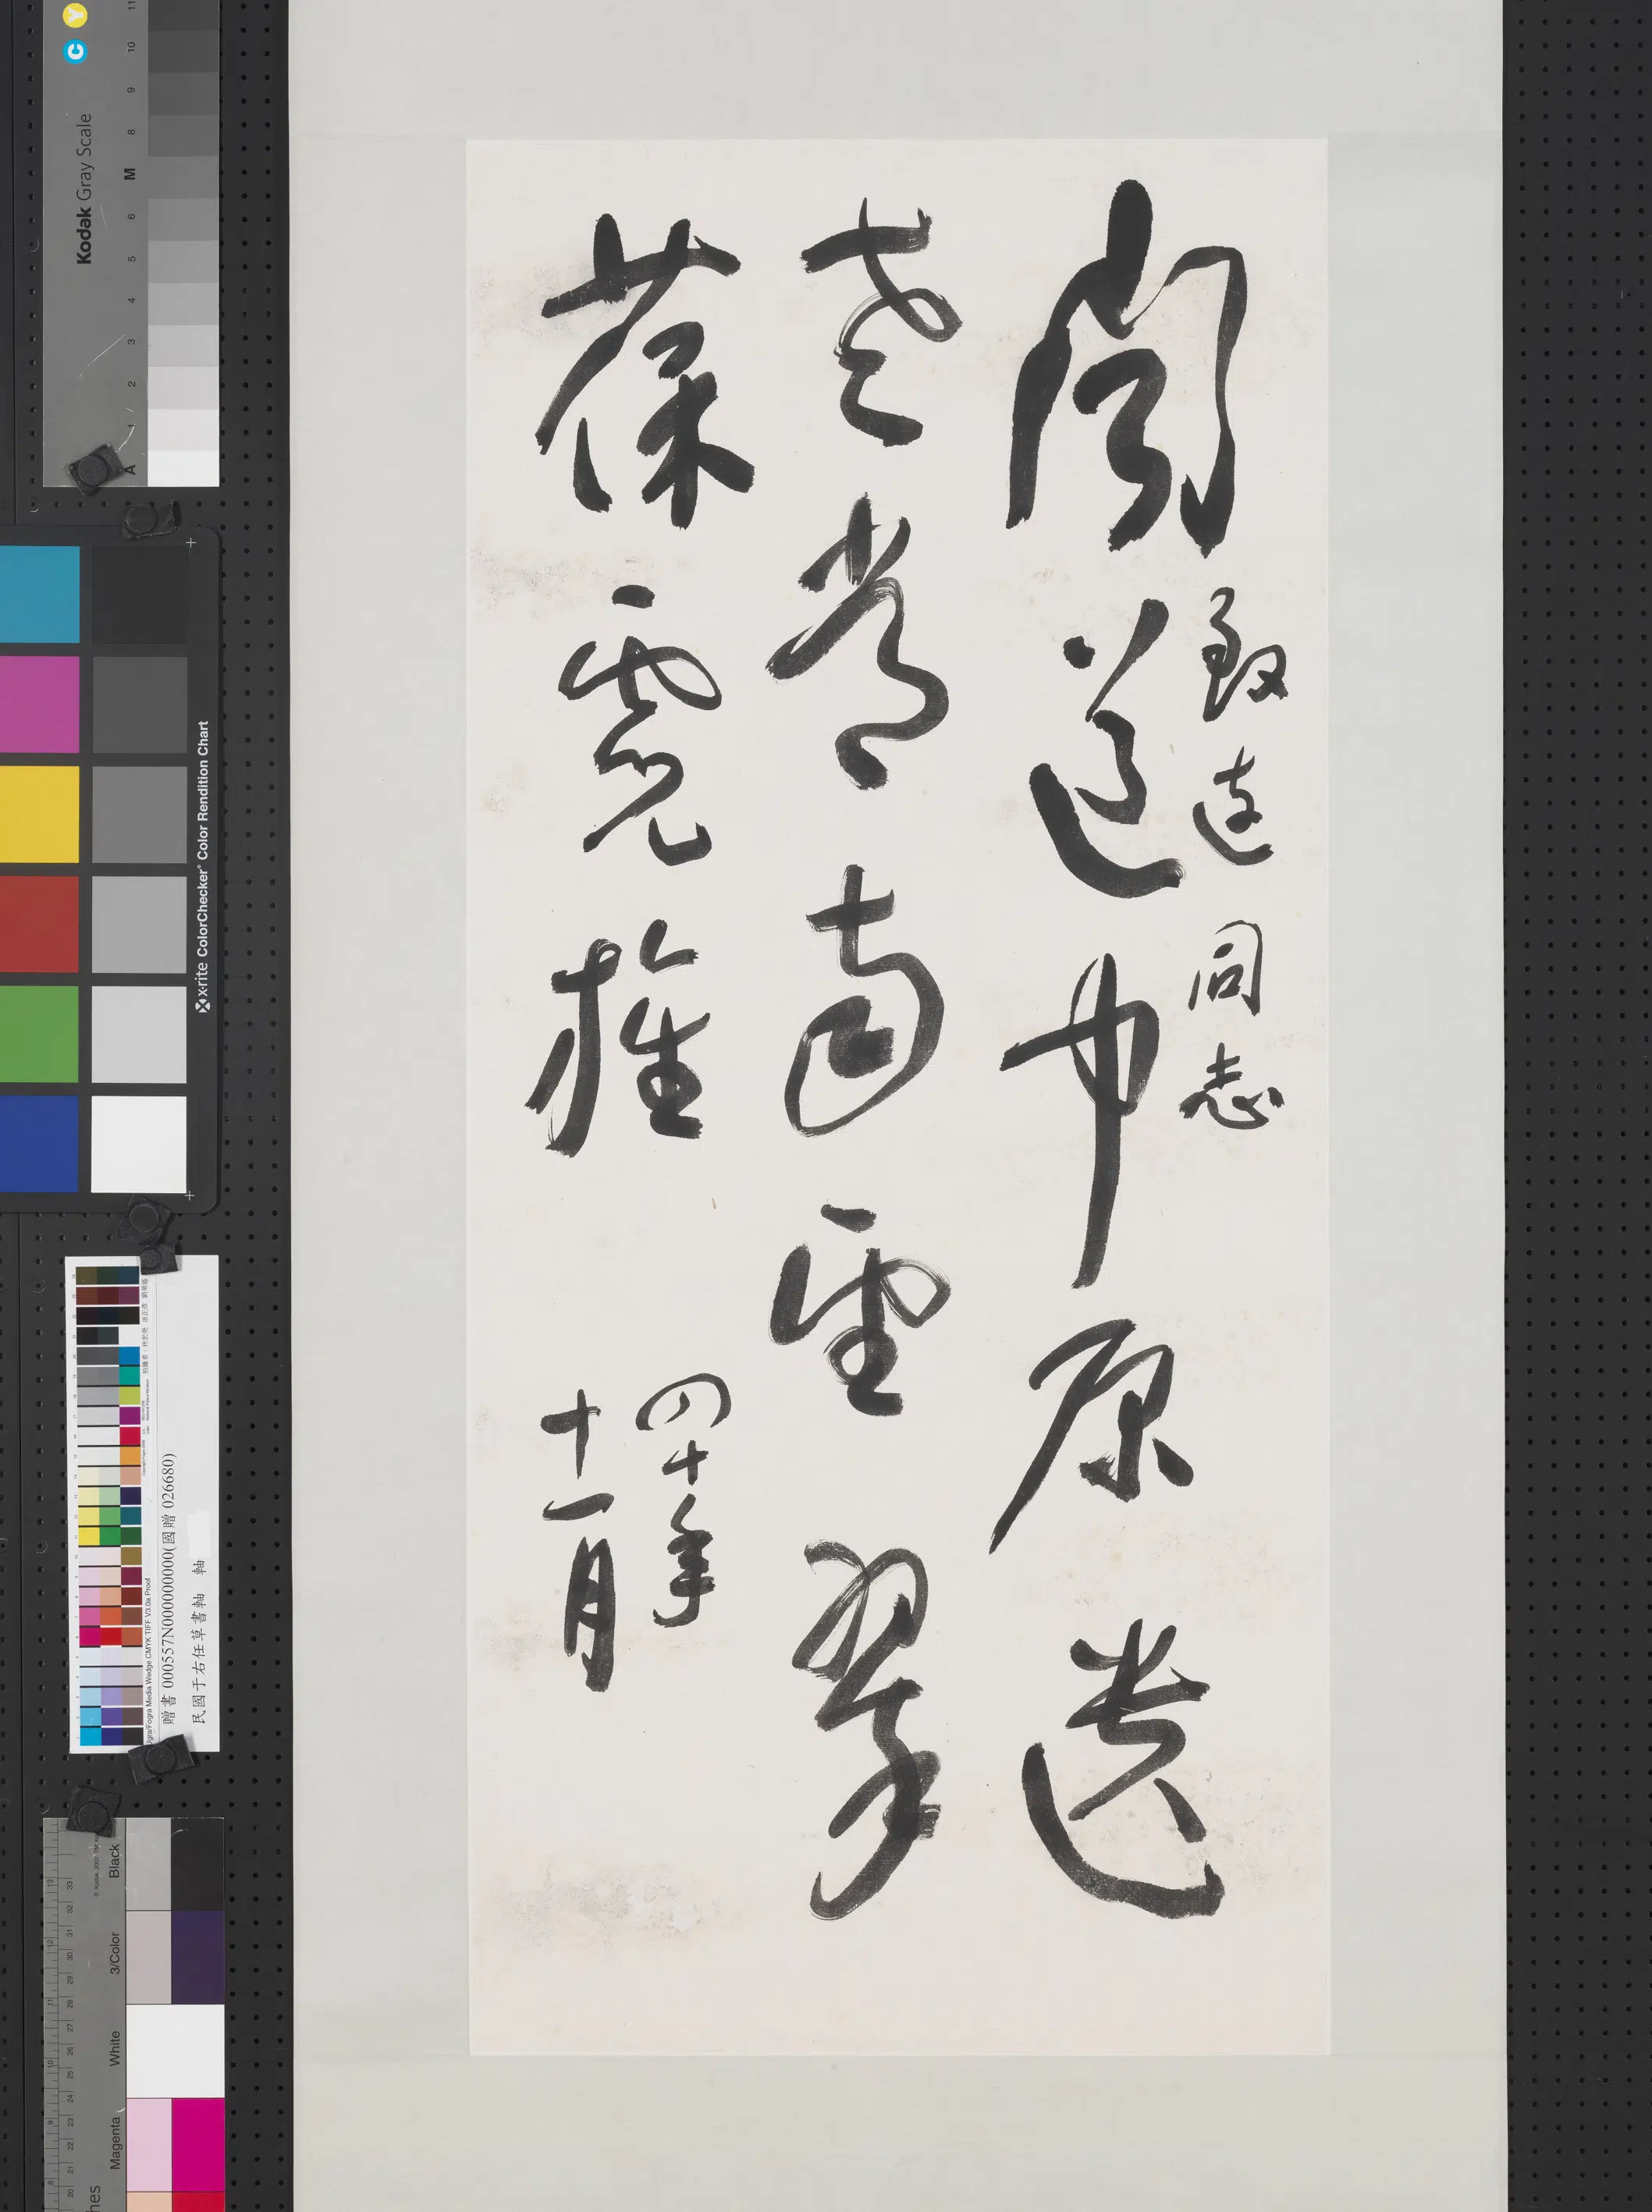 聞道中原遺
致遠同志
老常南望翠
葆霓旌
四十年
十一月
Kodak Gray Scale
C Y
A 1 2 3 4 5 6 M 8 9 10 11
x-rite ColorChecker Color Rendition Chart
贈書 000557N000000000(國贈 026680)
民國于右任草書軸 軸
Ugra/Fogra Media Wedge CMYK TIFF V3.0a Proof
Black
3/Color
White
Magenta